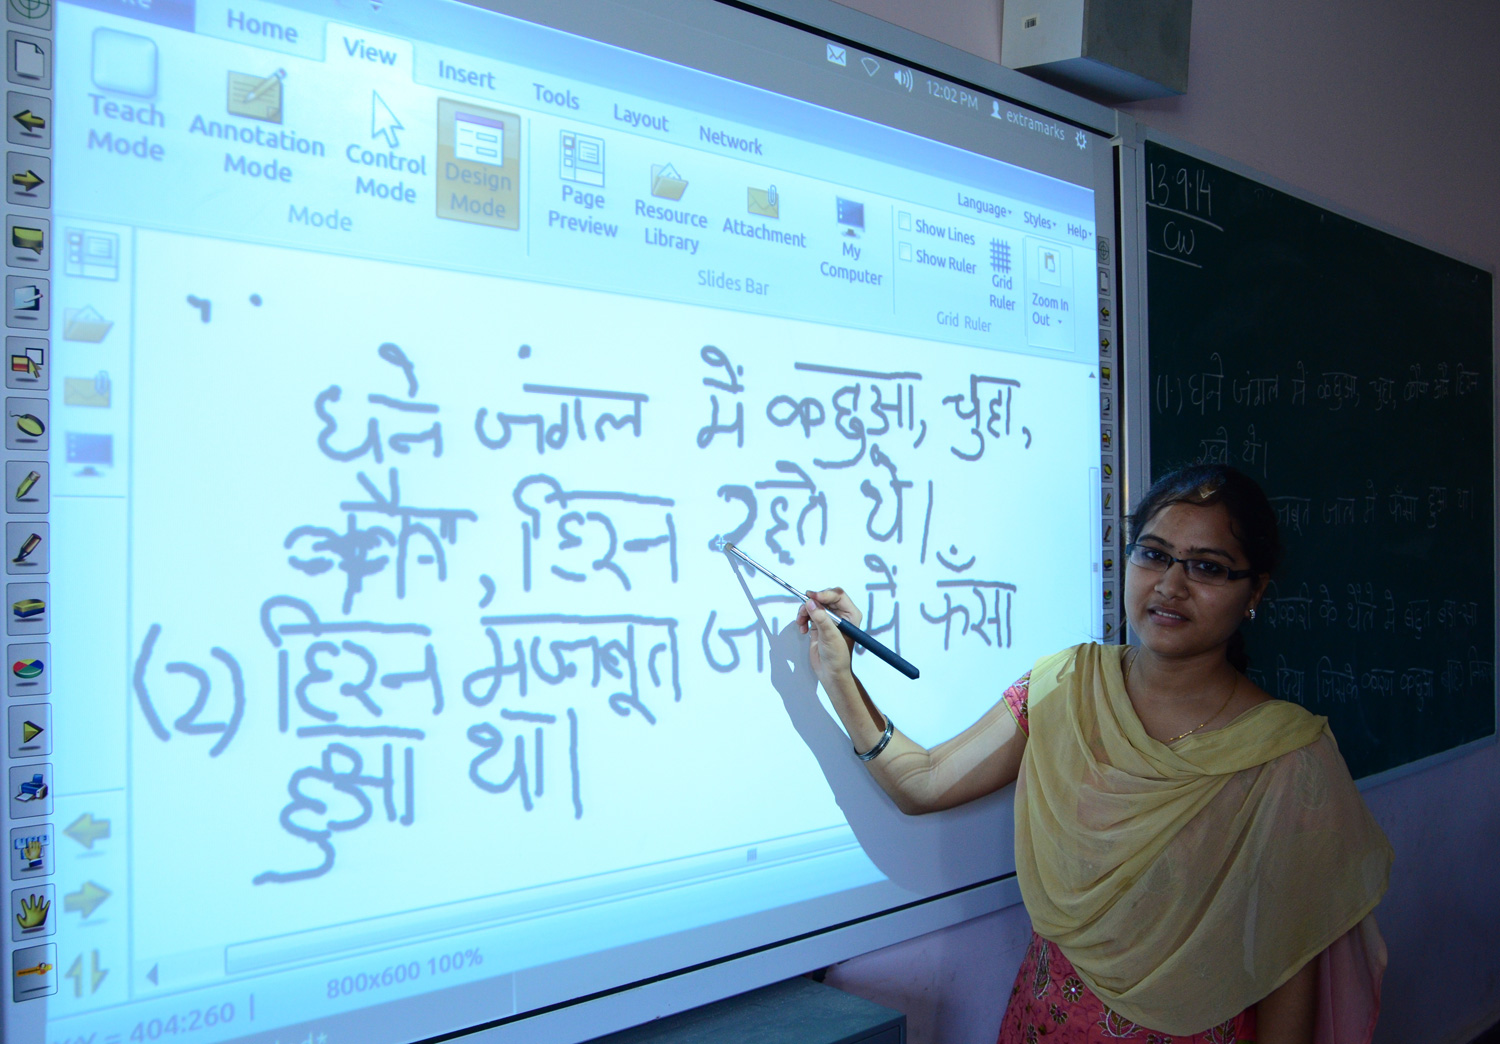 Home View Insert Tools Layout Network
12:02 PM extramarks
Teach Mode
Annotation Mode
Control Mode
Design Mode
Mode
Page Preview
Resource Library
Attachment
My Computer
Slides Bar
Language Styles Help
Show Lines
Show Ruler
Grid Ruler
Grid Ruler
Zoom In Out
घने जंगल में कछुआ, चुहा,
कौआ, हिरन रहते थे।
(2) हिरन मजबूत में फँसा
हुआ था।
800x600 100%
= 404:260
13.9.14
CW
(1) घने जंगल में कछुआ, चुहा,
रहते थे।
जाल में फँसा हुआ था।